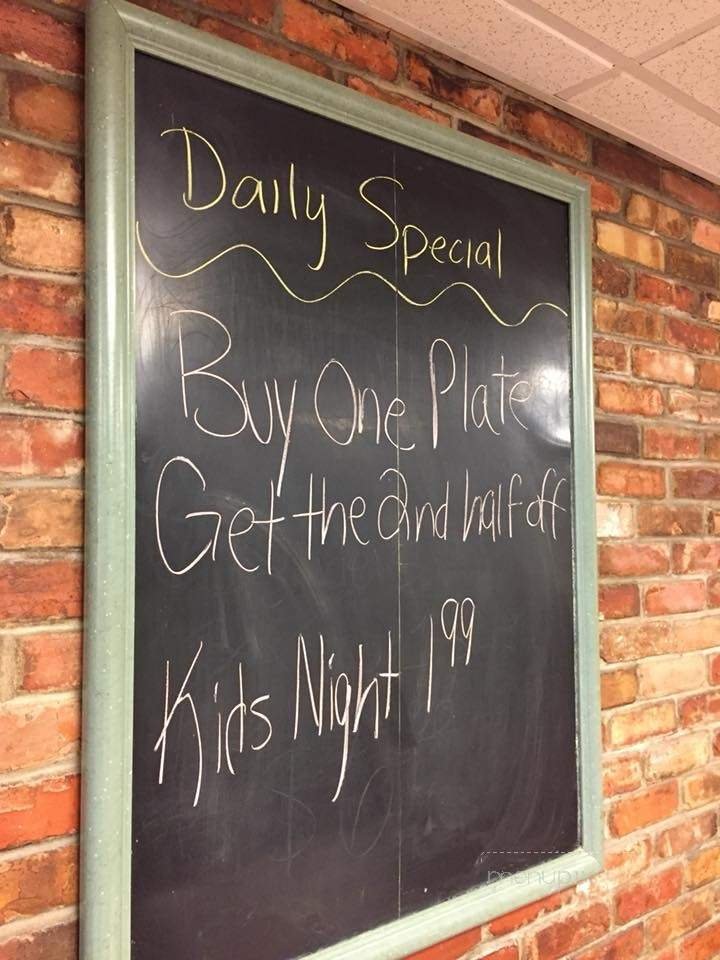 Daily Special
Buy One Plate
Get the 2nd half off
Kids Night 1 99
menupix